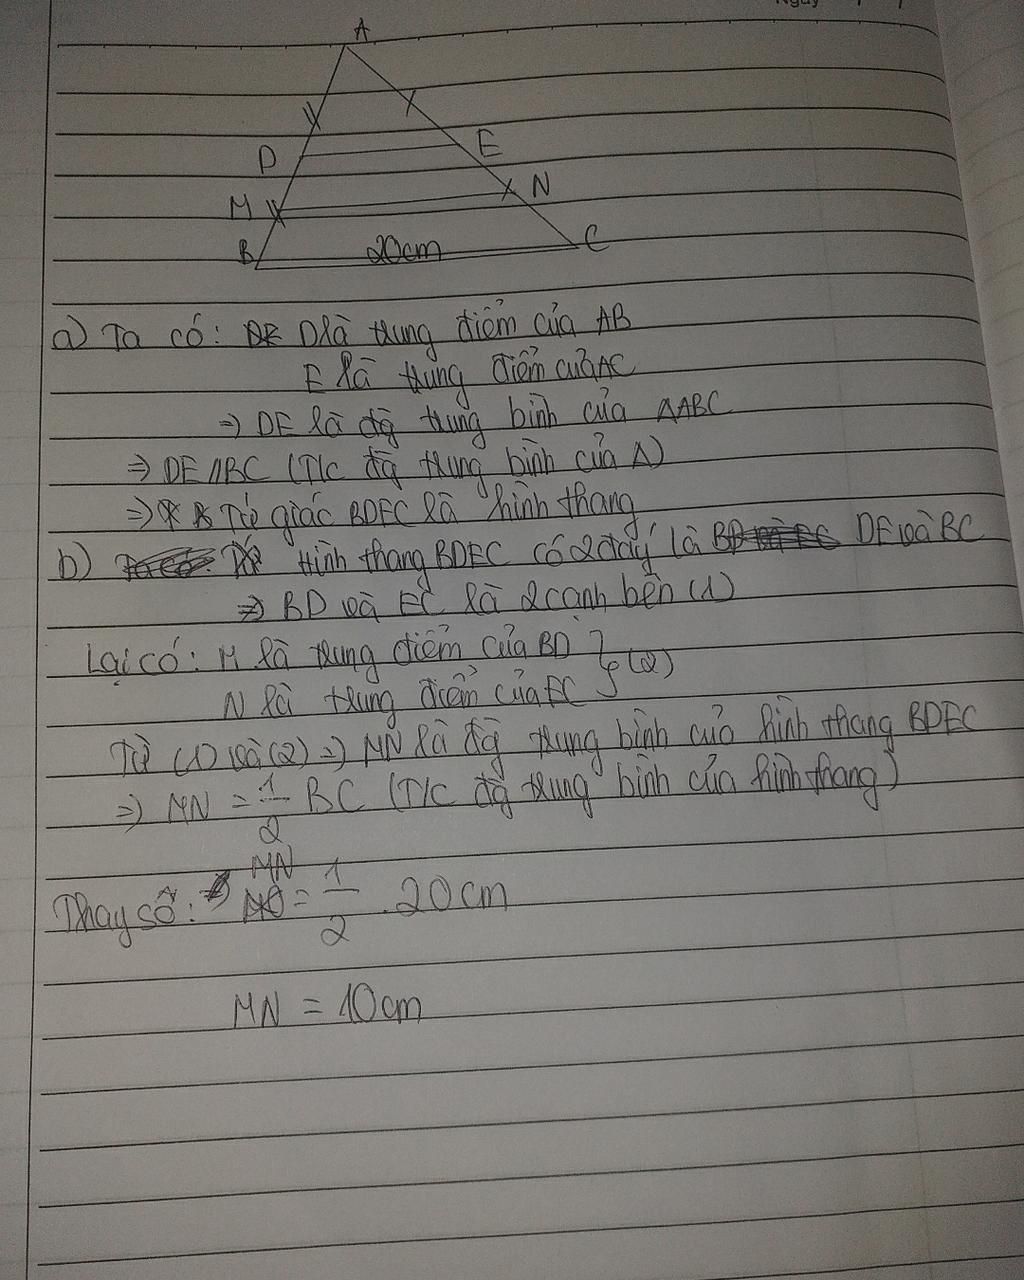 Ngày
A
D
E
M
N
B
20cm
C
a) Ta có: D là trung điểm của AB
E là trung điểm của AC
=> DE là đg trung bình của ΔABC
=> DE // BC (T/c đg trung bình của Δ)
=> Tứ giác BDEC là hình thang
b) Hình thang BDEC có 2 đáy là DE và BC
=> BD và EC là 2 cạnh bên (1)
Lại có: M là trung điểm của BD
N là trung điểm của EC } (2)
Từ (1) và (2) => MN là đg trung bình của hình thang BDEC
=> MN = 1/2 BC (T/c đg trung bình của hình thang)
Thay số: MN = 1/2 . 20cm
MN = 10cm